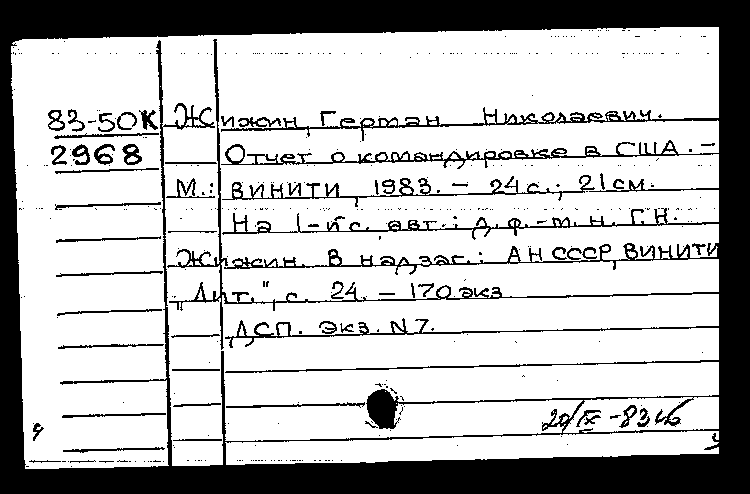 83-50К Жижин, Герман Николаевич.
2968 Отчет о командировке в США. –
М.: ВИНИТИ, 1983. – 24 с.; 21 см.
На 1-й с. авт.: д. ф.-м. н. Г.Н.
Жижин. В надзаг.: АН СССР, ВИНИТИ
„Лит.", с. 24. – 170 экз
ДСП. Экз. N 7.
20/IX -83